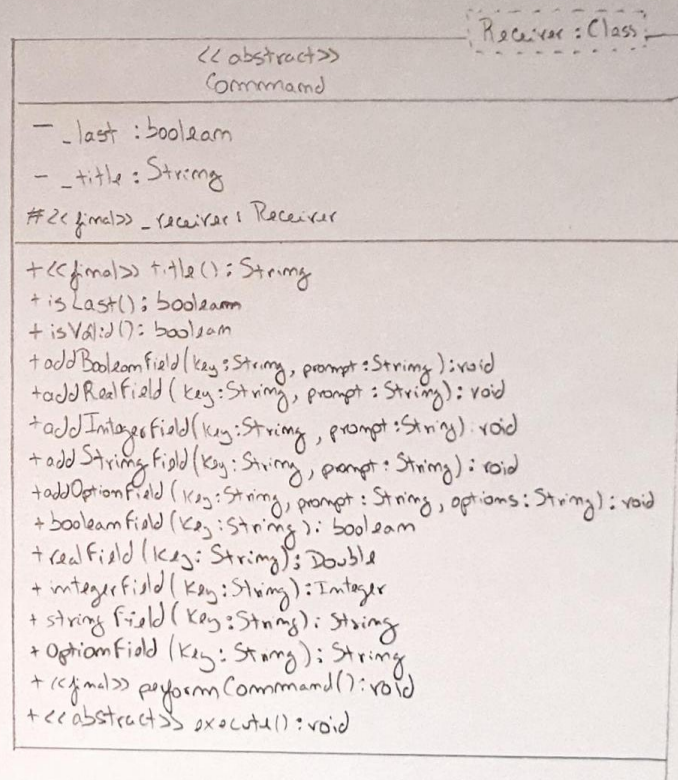 Receiver : Class
<<abstract>>
Command
- _last : boolean
- _title : String
# <<final>> _receiver : Receiver
+ <<final>> title() : String
+ isLast() : boolean
+ isValid() : boolean
+ addBooleanField(key : String, prompt : String) : void
+ addRealField(key : String, prompt : String) : void
+ addIntegerField(key : String, prompt : String) : void
+ addStringField(key : String, prompt : String) : void
+ addOptionField(key : String, prompt : String, options : String) : void
+ booleanField(key : String) : boolean
+ realField(key : String) : Double
+ integerField(key : String) : Integer
+ stringField(key : String) : String
+ optionField(key : String) : String
+ <<final>> performCommand() : void
+ <<abstract>> execute() : void